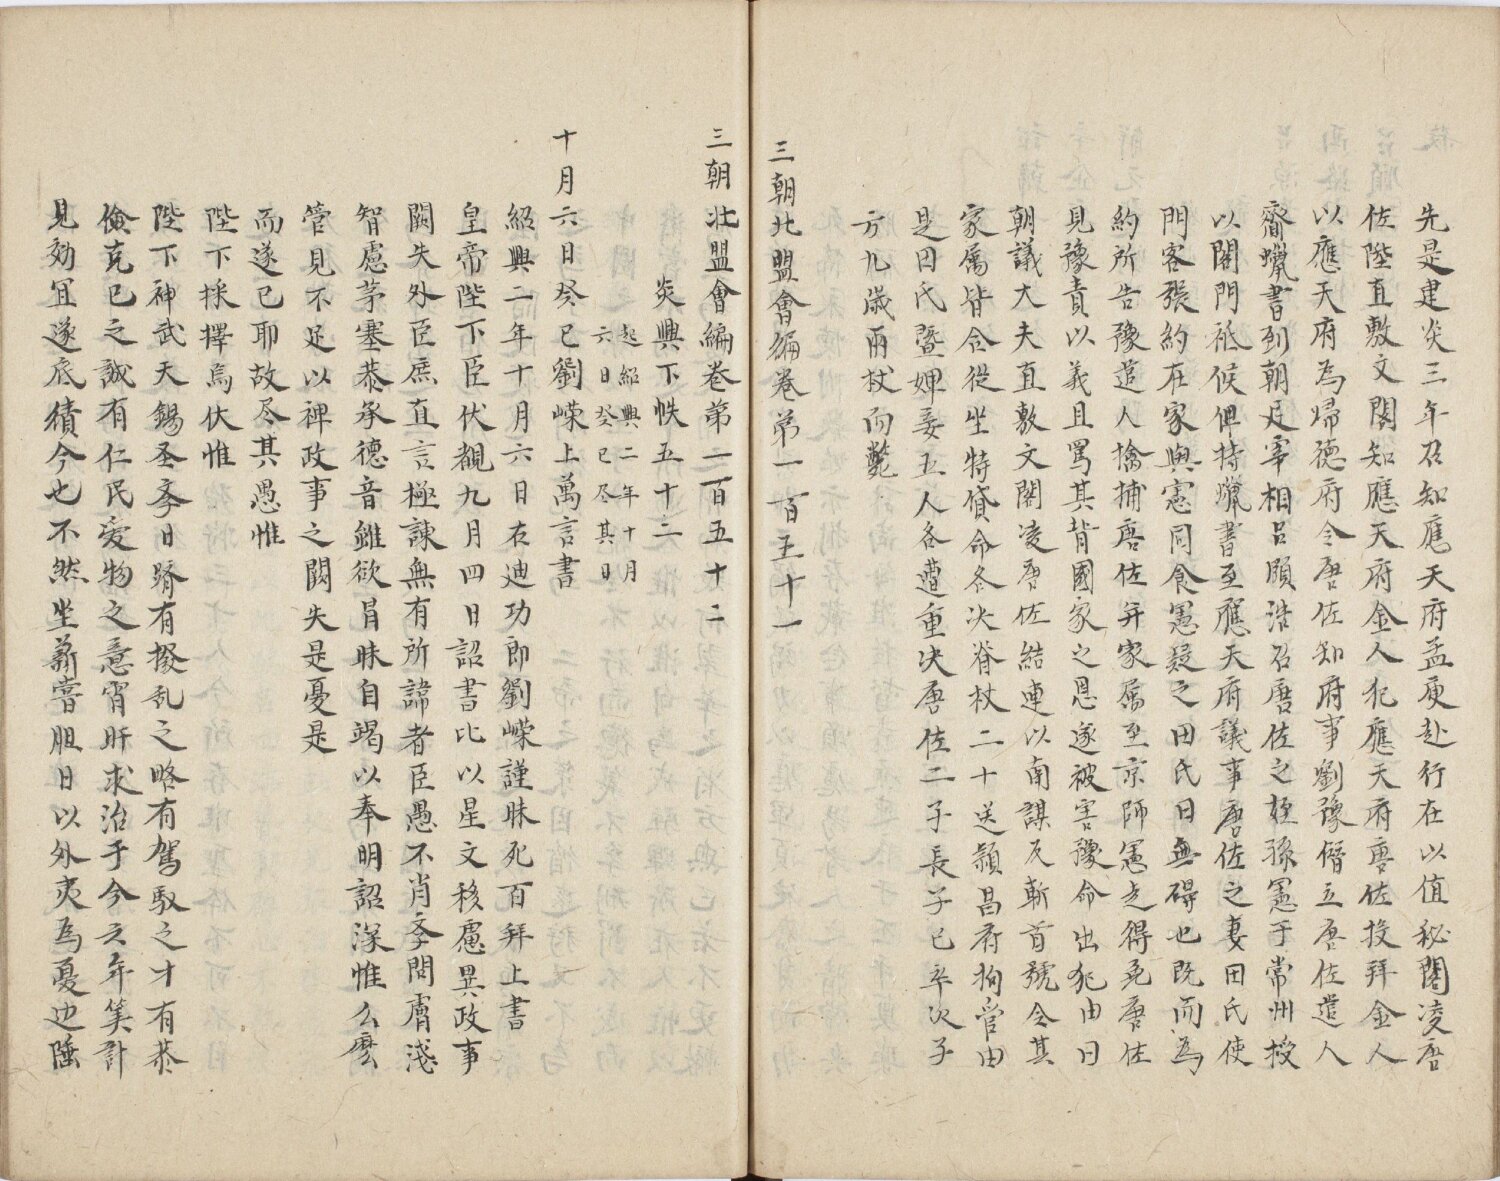 先是建炎三年召知應天府孟庾赴行在以值秘閣凌唐
佐陞直敷文閣知應天府金人犯應天府唐佐投拜金人
以應天府為歸德府令唐佐知府事劉豫僭立唐佐遣人
齎蠟書到朝廷宰相呂頤浩召唐佐之姪孫憲于常州授
以閤門祗候俾持蠟書至應天府議事唐佐之妻田氏使
門客張約在家與憲同食憲疑之田氏曰無碍也既而為
約所告豫遣人擒捕唐佐并家屬至京師憲走得免唐佐
見豫責以義且罵其背國家之恩遂被害豫命出犯由曰
朝議大夫直敷文閣凌唐佐結連以南謀反斬首號令其
家屬皆合從坐特貸命各决脊杖二十送潁昌府拘管由
是田氏暨婢妾五人各遭重决唐佐二子長子已卒次子
方九歲兩杖而斃
三朝北盟會編卷第一百五十一
三朝北盟會編卷第一百五十二
炎興下帙五十二
起紹興二年十月
六日癸巳尽其日
十月六日癸巳劉嶸上萬言書
紹興二年十月六日右迪功郎劉嶸謹昧死百拜上書
皇帝陛下臣伏覩九月四日詔書比以星文移慮異政事
闕失外臣庶直言極諫無有所諱者臣愚不肖季問膚淺
智慮茅塞恭承德音雖欲冐昧自竭以奉明詔深惟么麼
管見不足以裨政事之闕失是憂是
而遂已耶故尽其愚惟
陛下採擇焉伏惟
陛下神武天錫圣孝日躋有撥乱之略有駕馭之才有恭
儉克已之誠有仁民爱物之意宵旰求治于今六年筭計
見効宜遂底績今也不然坐薪嘗胆日以外夷為憂边陲